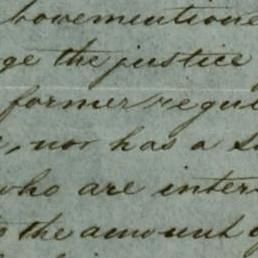 bovementione
ge the justice
former regul
, nor has a s
who are inter
the amount